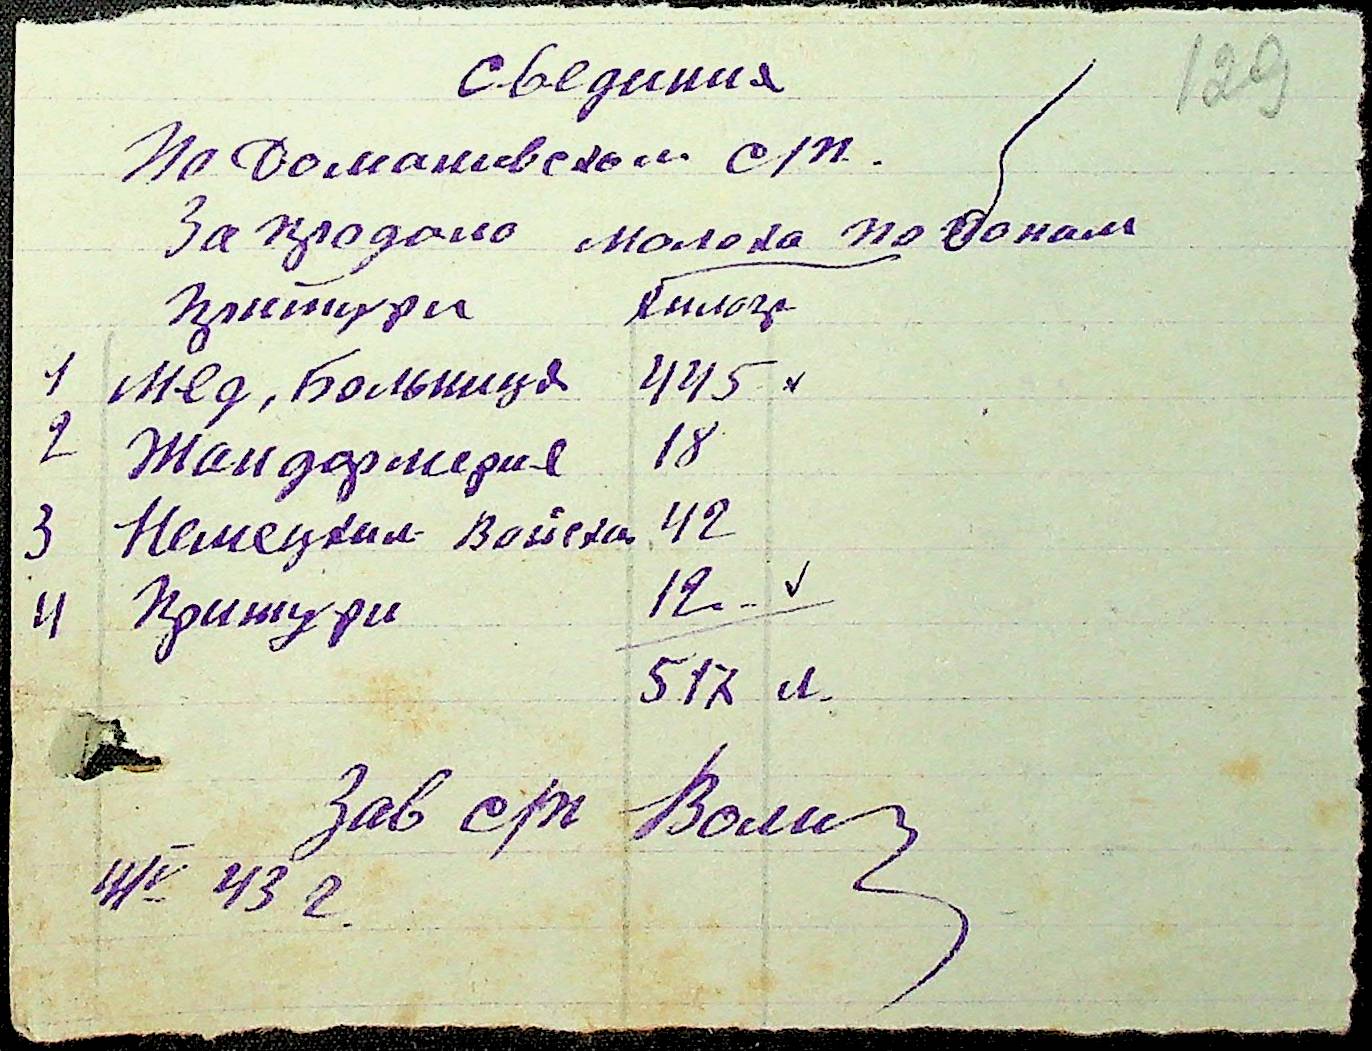 129
Свединия
По Доманивском с/п.
За продано молока по бонам
Притури Килогр
1 Мед, Больница 445 v
2 Жандармерия 18
3 Немецким Войска 42
4 Притури 12 v
517 л.
Зав с/п
4/IV 43 г.